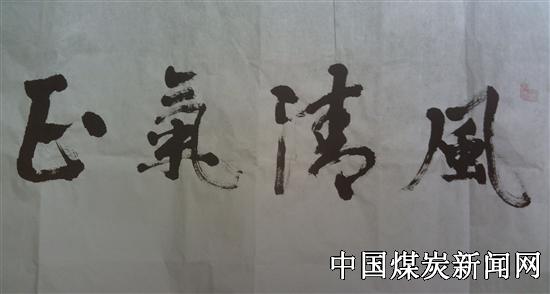 風清氣正
中国煤炭新闻网